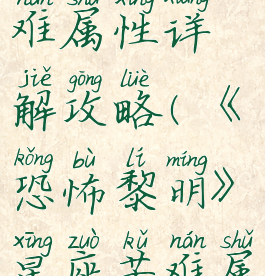 nán shǔ xìng xiáng
难属性详
jiě gōng lüè
解攻略(《
kǒng bù lí míng
恐怖黎明》
xīng zuò kǔ nán shǔ
星座苦难属